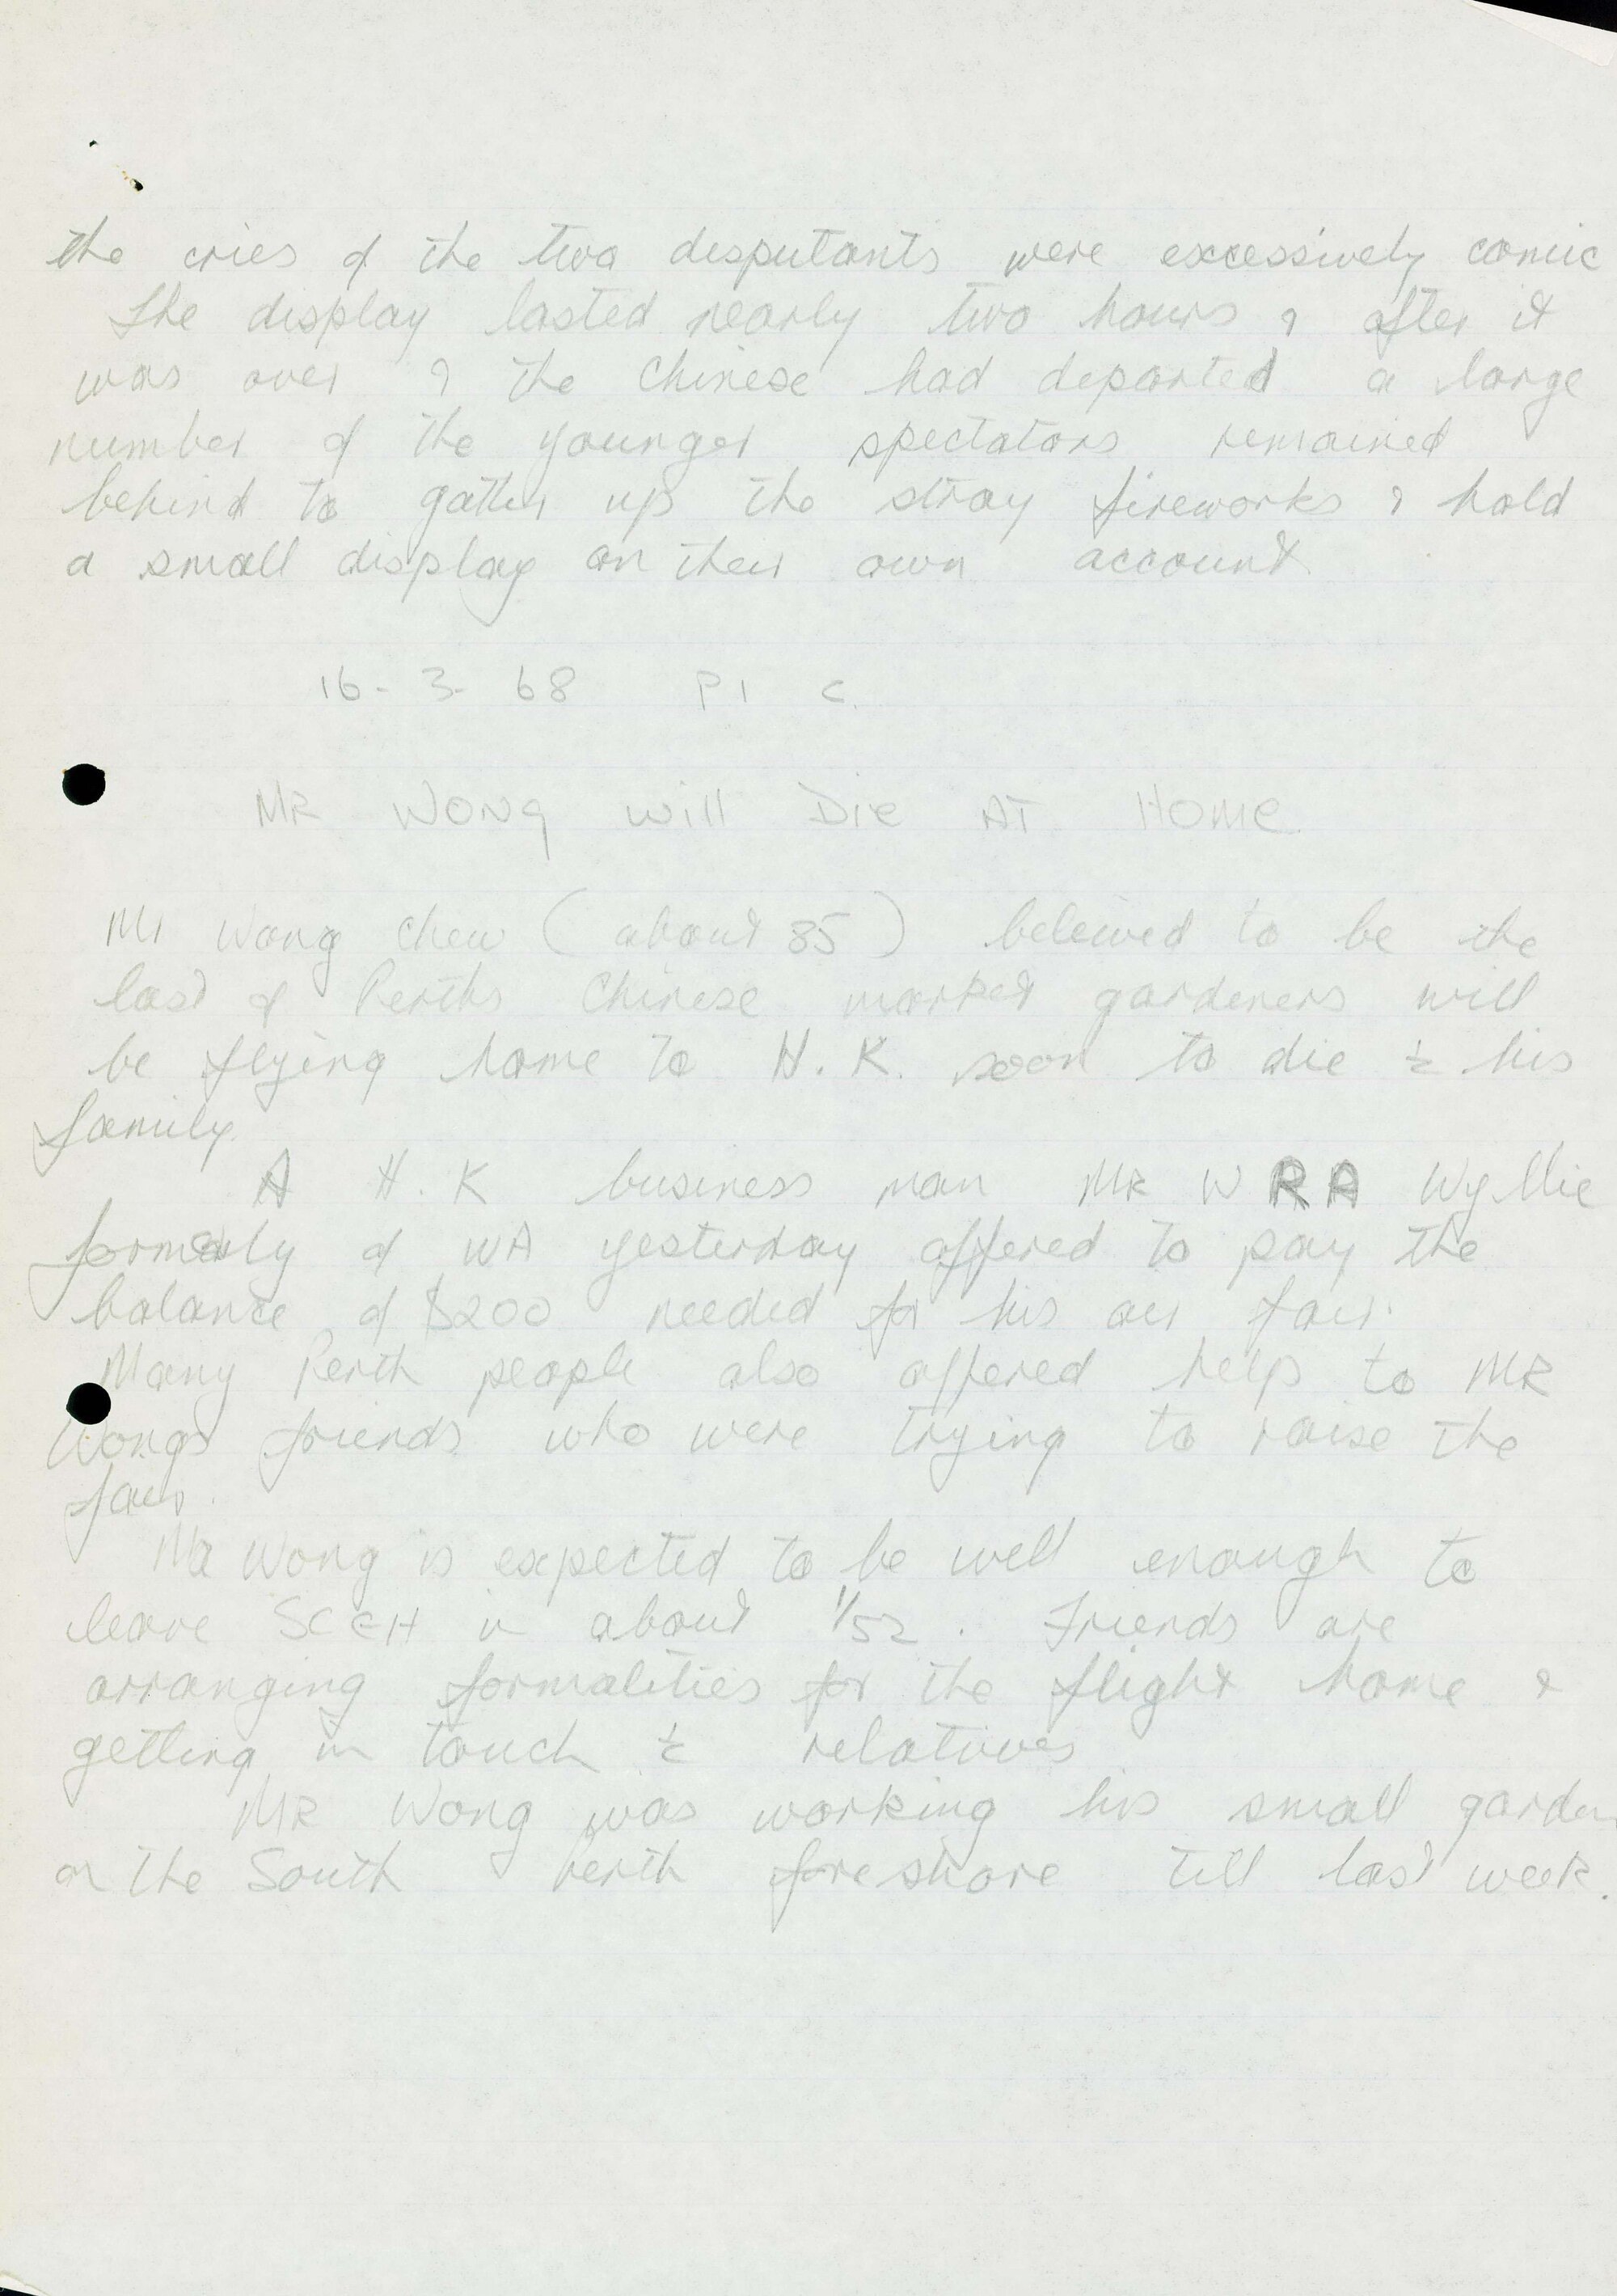 the cries of the two desputants were excessively comic
The display lasted nearly two hours & after it
was over & the Chinese had departed a large
number of the younger spectators remained
behind to gather up the stray fireworks & hold
a small display on their own account.
16-3-68 P1 C.
MR WONG Will Die AT Home.
Mr Wong Chew (about 85) beleived to be the
last of Perths Chinese market gardeners will
be flying home to H.K. soon to die c̄ his
family.
A H.K business man MR W R A Wyllie
formerly of WA yesterday offered to pay the
balance of $200 needed for his air fair.
Many Perth people also offered help to MR
Wongs friends who were trying to raise the
fair.
Mr Wong is expected to be well enough to
leave SCGH in about 1/52. Friends are
arranging formalities for the flight home &
getting in touch c̄ relatives
MR Wong was working his small garden
on the South Perth foreshore till last week.